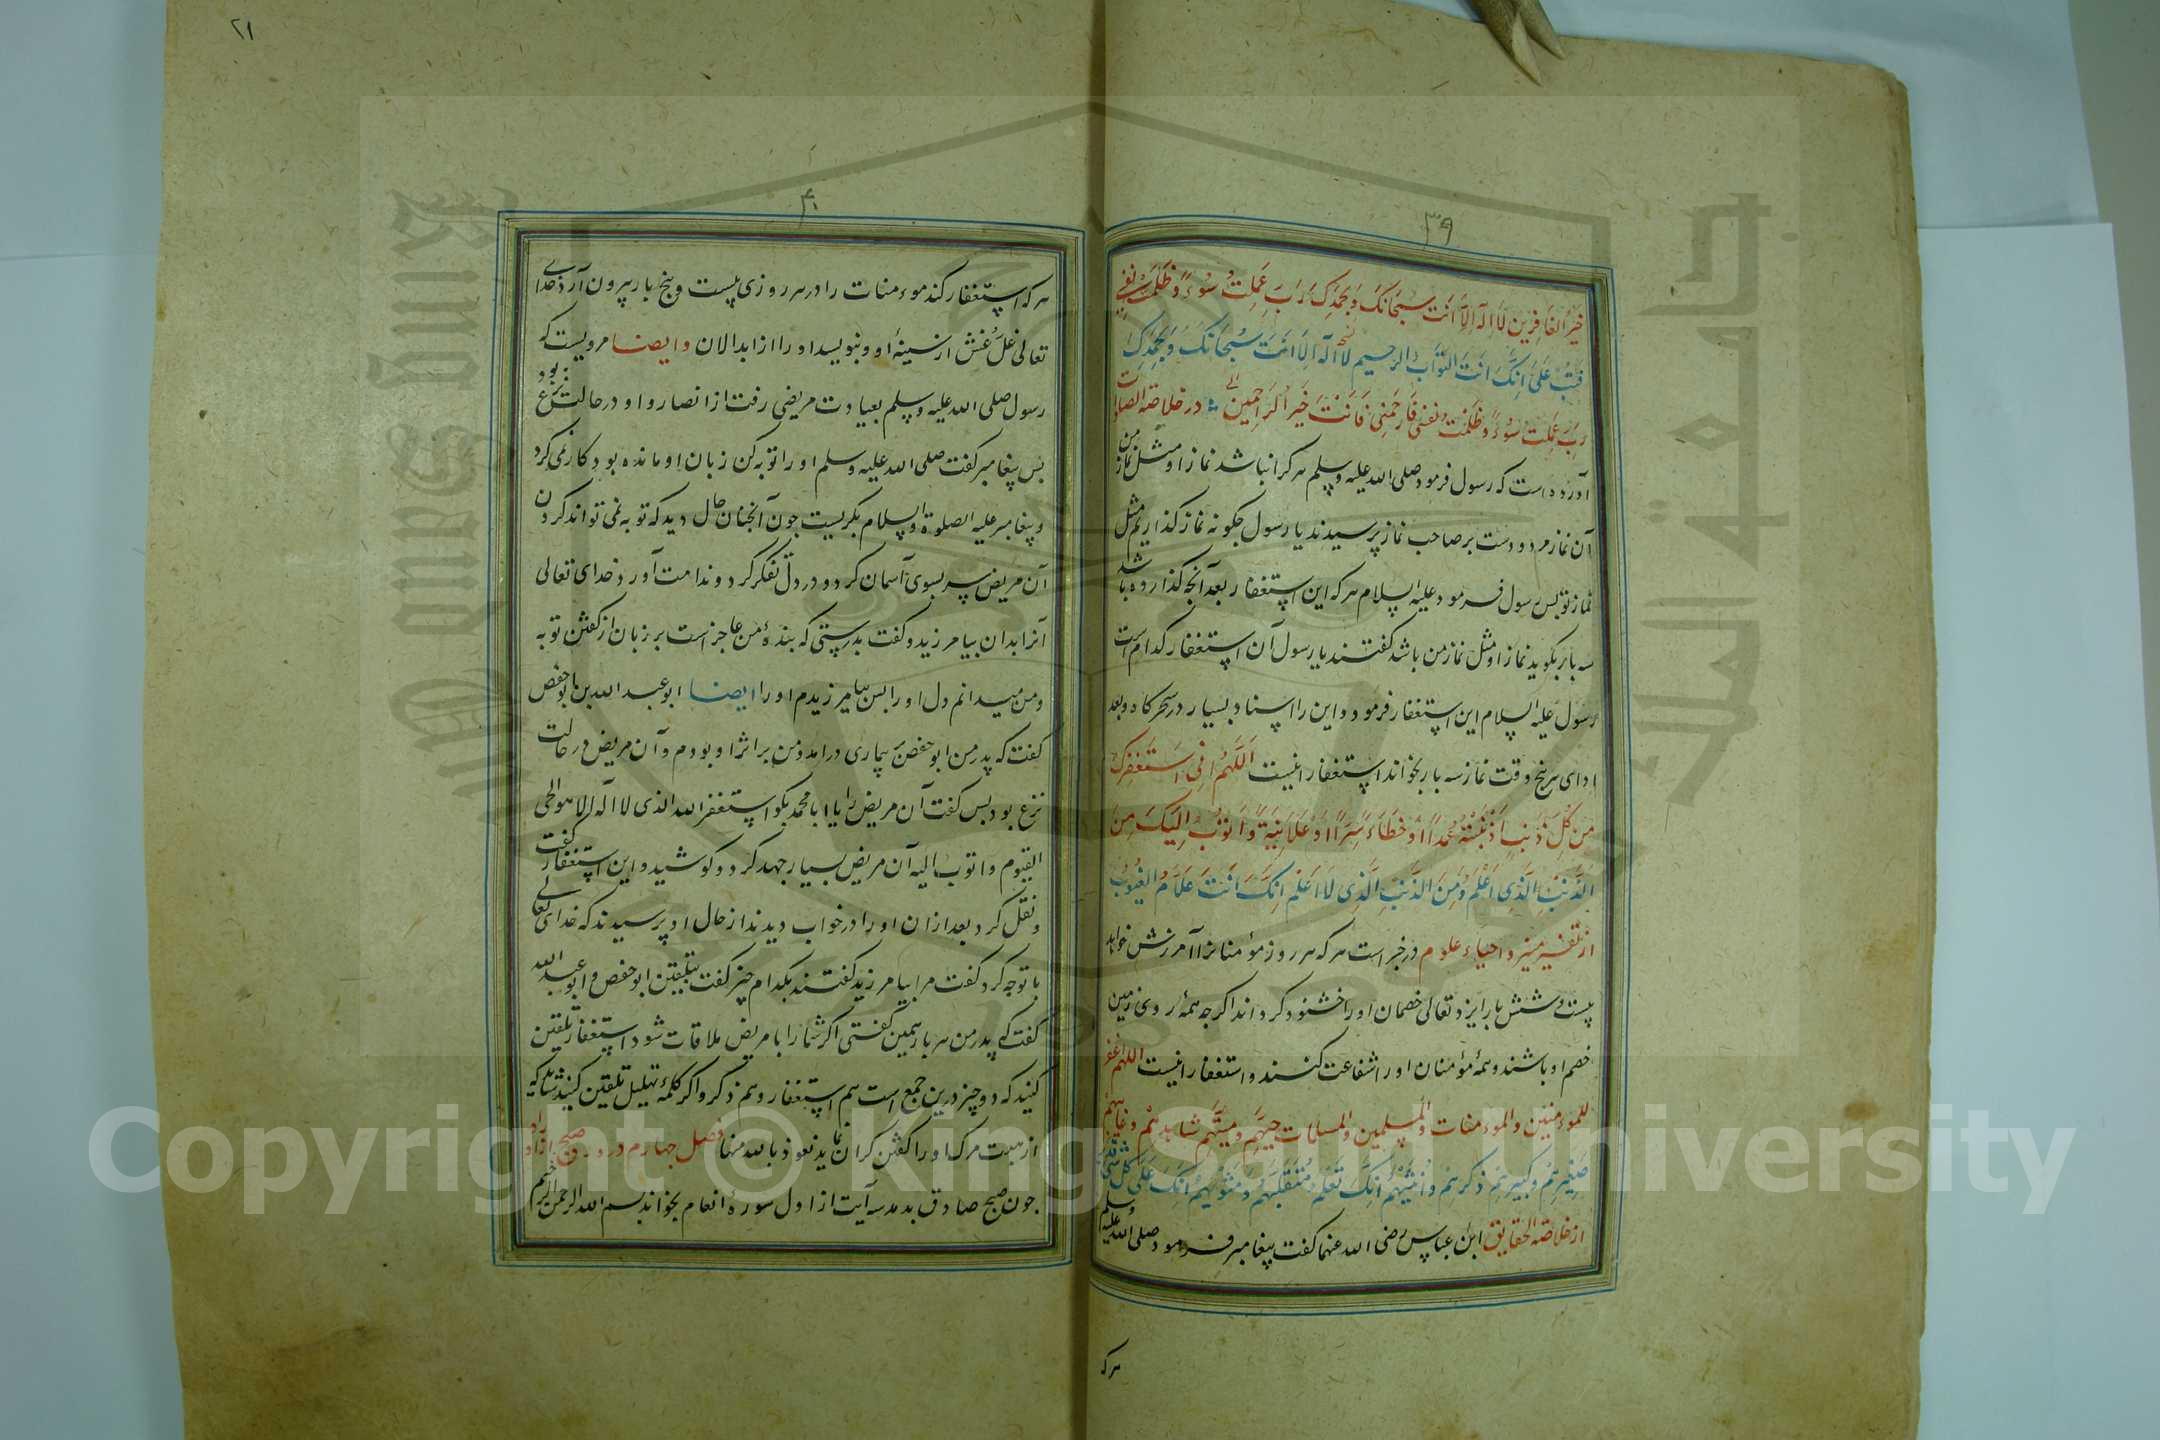 ۳۹
خَيْرُ الغَافِرِين لَا اِلَهَ اِلَّا اَنْتَ سُبْحَانَكَ وَبِحَمْدِكَ رَبِّ عَمِلْتُ سُوءً وَظَلَمْتُ نَفْسِي
فَتُبْ عَلَىَّ اِنَّكَ اَنْتَ التَّوَّابُ الرَّحِيم لَا اِلَهَ اِلَّا اَنْتَ سُبْحَانَكَ وَبِحَمْدِكَ
رَبِّ عَمِلْتُ سُوءً وَظَلَمْتُ نَفْسِي فَارْحَمْنِي فَاَنْتَ خَيْرُ الرَّاحِمِين در خلاصة الصلوات
آورده است که رسول فرمود صلی الله علیه وسلم هر که را نباشد نماز او مثل نماز من
آن نماز مردودست بر صاحب نماز پرسیدند یا رسول جکونه نماز کذاریم مثل
نماز تو بس رسول فرمود علیه السلام هر که این استغفار بعد آنجه کذارده باشد
سه بار بکوید نماز او مثل نماز من باشد کفتند یا رسول آن استغفار کدام است
رسول علیه السلام این استغفار فرمود و این را اسناد بسیار در سحرکاه و بعد
ادای هر پنج وقت نماز سه بار بخواند استغفار اینست اَللَّهُمَّ اِنِّي اَسْتَغْفِرُكَ
مِنْ كُلِّ ذَنْبٍ اَذْنَبْتُهُ عَمْدًا اَوْ خَطَاءً سِرًّا اَوْ عَلَانِيَةً وَاَتُوبُ اِلَيْكَ مِنَ
الذَّنْبِ الَّذِي اَعْلَمُ وَمِنَ الذَّنْبِ الَّذِي لَا اَعْلَمُ اِنَّكَ اَنْتَ عَلَّامُ الغُيُوبُ
از تفسیر منیر و احیاء علوم در خبر است هر که هر روز مؤمنانرا آمرزش خواهد
بیست و شش بار ایزد تعالی خصمان او را خشنود کرداند اکرجه همهٔ روی زمین
خصم او باشند و همهٔ مؤمنان او را شفاعت کنند و استغفار اینست اللهم اغفر
للموءمنین والموءمنات والمسلمین والمسلمات حَيِّهِم وَمَيِّتِهِم شَاهِدِهِمْ وَغَايِبِهِم
صَغِيرِهِمْ وَكَبِيرِهِمْ ذَكَرِهِمْ وَاُنْثَيهُمْ اِنَّكَ تَعْلَمُ مُتَقَلَّبَهُمْ وَمَثْوَيهُمْ اِنَّكَ عَلَى كُلِّ شَيْءٍ قَدِير
از خلاصة الحقایق ابن عباس رضی الله عنهما کفت پیغامبر فرمود صلی الله علیه وسلم
هر که
۲۱
۴۰
هر که استغفار کند موءمنات را در هر روزی بیست و پنج بار بیرون آرد خدای
تعالی غلّ غش از سینهٔ او و بنویسد او را از ابدالان وایضا مرویست که
رسول صلی الله علیه وسلم بعیادت مریضی رفت از انصار و او در حالت نزع بود
بس پیغامبر کفت صلی الله علیه وسلم او را توبه کن زبان او مانده بود کار نمی کرد
و پیغامبر علیه الصلوة والسلام بکریست جون آنجنان حال دید که توبه نمی تواند کردن
آن مریض سر بسوی آسمان کرد و در دل تفکر کرد و ندامت آورد خدای تعالی
آنرا بدان بیامرزید و کفت بدرستی که بندهٔ من عاجز است بر زبان از کفتن توبه
و من میدانم دل او را بس بیامرزیدم او را ایضا ابو عبد الله بن ابو حفص
کفت که پدر من ابو حفص بیماری درآمد و من بر اثر او بودم و آن مریض در حالت
نزع بود بس کفت آن مریض را یا ابا محمد بکو استغفر الله الذی لا اله الا هو الحی
القیوم واتوب الیه آن مریض بسیار جهد کرد و کوشید و این استغفار کفت
و نقل کرد بعد ازان او را در خواب دیدند از حال او پرسیدند که خدای تعالی
با توجه کرد کفت مرا بیامرزید کفتند بکدام چیز کفت بتلقین ابو حفص و ابو عبد الله
کفت که پدر من هر بار همین کفتی اکر شما را با مریض ملاقات شود استغفار تلقین
کنید که دو چیز درین جمع است هم استغفار و هم ذکر و اکر کلمهٔ تهلیل تلقین کنید شاید که
از هیبت مرک او را کفتن کران نماید نعوذ بالله منها فصل جهارم در ورد صبح و اوراد
جون صبح صادق بدمد سه آیت از اول سورهٔ انعام بخواند بسم الله الرحمن الرحیم
Copyright © King Saud University
جامعة الملك سعود
King Saud University
1957